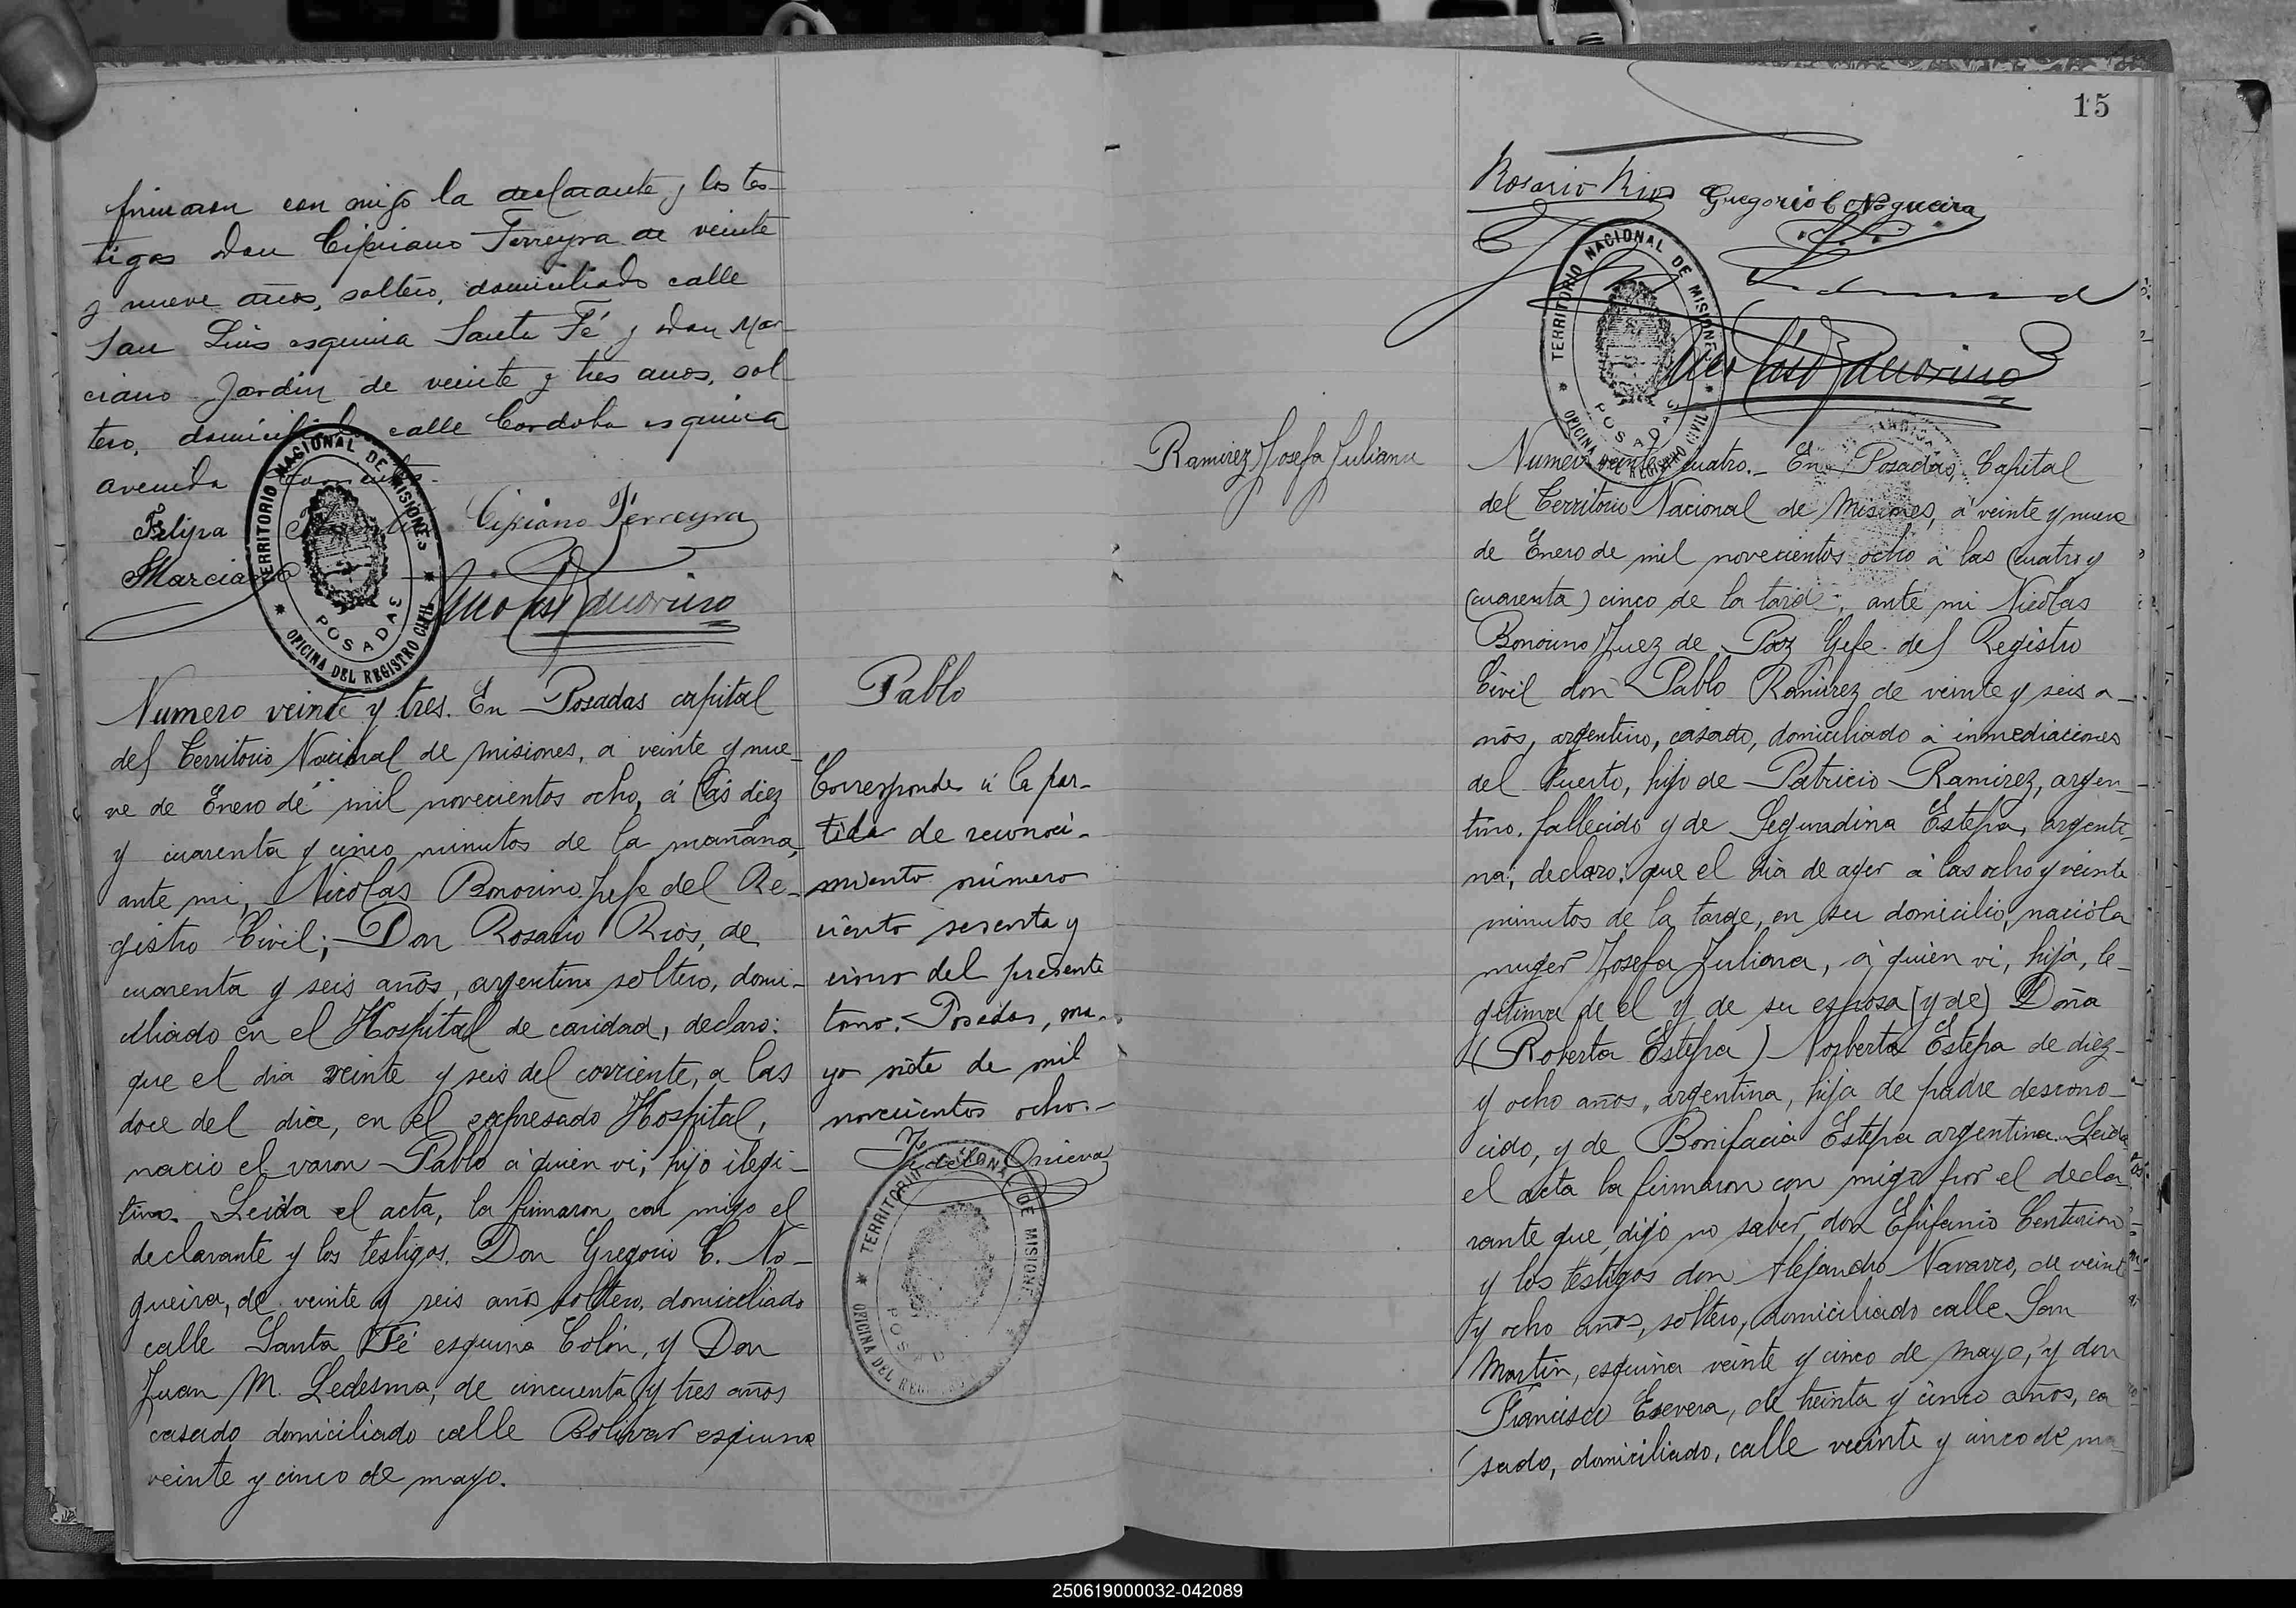 firmaron con migo la declarante y los tes-
tigos don Cipriano Ferreyra de veinte
y nueve años, soltero, domiciliado calle
San Luis esquina Santa Fé y don Mar-
ciano Jardin de veinte y tres anos, sol-
tero, domiciliado calle Cordoba esquina
avenida
Felipa
Cipriano Ferreyra
Marciano
Nicolás Bonorino
TERRITORIO NACIONAL DE MISIONES
POSADAS
OFICINA DEL REGISTRO CIVIL
Numero veinte y tres. En Posadas capital
del Territorio Nacional de Misiones, a veinte y nue-
ve de Enero de mil novecientos ocho, á las diez
y cuarenta y cinco minutos de la mañana,
ante mi, Nicolás Bonorino Jefe del Re-
gistro Civil; Don Rosario Rios, de
cuarenta y seis años, argentino soltero, domi-
ciliado en el Hospital de caridad, declaro:
que el dia veinte y seis del corriente, a las
doce del dia, en el expresado Hospital,
nacio el varon Pablo a quien vi; hijo ilegi-
timo. Leida el acta, la firmaron con migo el
declarante y los testigos. Don Gregorio C. No-
gueira, de veinte y seis años soltero, domiciliado
calle Santa Fé esquina Colón, y Don
Juan M. Ledesma; de cincuenta y tres años
casado domiciliado calle Bolivar esquina
veinte y cinco de mayo.
Pablo
Corresponde á la par-
tida de reconoci-
miento número
ciento sesenta y
cinco del presente
tomo. Posadas, ma-
yo siete de mil
novecientos ocho.-
Onieva
TERRITORIO NACIONAL DE MISIONES
POSADAS
OFICINA DEL REGISTRO
15
Rosario Rios
Gregorio C Nogueira
Nicolás Bonorino
TERRITORIO NACIONAL DE MISIONES
POSADAS
OFICINA DEL REGISTRO CIVIL
Ramirez Josefa Juliana
Numero veinte y cuatro.- En Posadas, Capital
del Territorio Nacional de Misiones, á veinte y nueve
de Enero de mil novecientos ocho á las (cuatro y
(cuarenta) cinco de la tarde, ante mi Nicolas
Bonorino Juez de Paz Gefe del Registro
Civil don Pablo Ramirez de veinte y seis a-
ños, argentino, casado, domiciliado á inmediaciones
del Puerto, hijo de Patricio Ramirez, argen-
tino, fallecido y de Segundina Estepa, argenti-
na; declaro: que el dia de ayer á las ocho y veinte
minutos de la tarde, en su domicilio, nació la
muger Josefa Juliana, á quien vi, hija, le-
gitima de el y de su esposa (y de) Doña
(Roberta Estepa) Norberta Estepa de diez
y ocho años, argentina, hija de padre descono-
cido, y de Bonifacia Estepa argentina. Leida
el acta la firmaron con migo por el decla-
rante que dijo no saber, don Epifanio Centurion
y los testigos don Alejandro Navarro, de veinte
y ocho años, soltero, domiciliado calle San
Martin, esquina veinte y cinco de mayo, y don
Francisco Esevera, de treinta y cinco años, ca
sado, domiciliado, calle veinte y cinco de ma
250619000032-042089